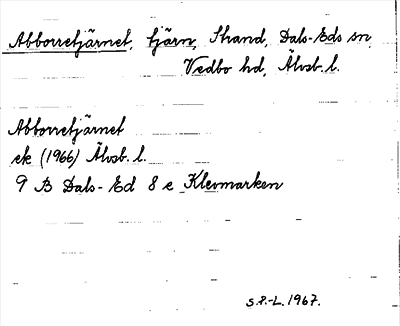 Abborretjärnet, tjärn, Strand, Dals-Eds sn,
Vedbo hd, Älvsb. l.
Abborretjärnet
ek (1966) Älvsb. l.
9 B Dals-Ed 8 e Klevmarken
S.P.-L. 1967.